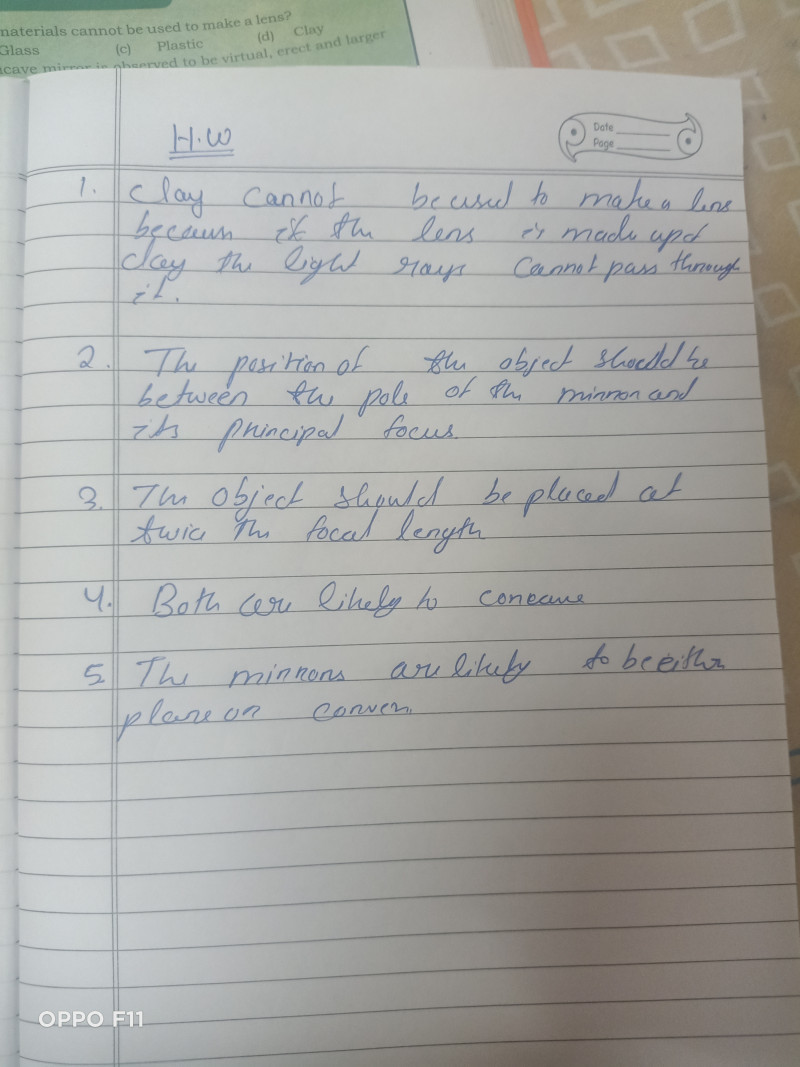 materials cannot be used to make a lens?
Glass (c) Plastic (d) Clay
cave mirror is observed to be virtual, erect and larger
H.W
Date
Page
1. Clay cannot be used to make a lens
because if the lens is made up of
clay the light rays cannot pass through
it.
2. The position of the object should be
between the pole of the mirror and
its principal focus.
3. The object should be placed at
twice the focal length
4. Both are likely to concave
5. The mirrors are likely to be either
plane or convex.
OPPO F11